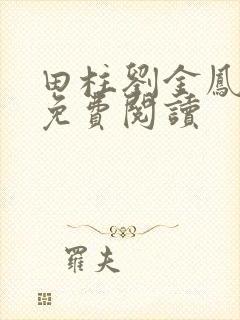 田柱劉金鳳
免費閱讀
羅夫